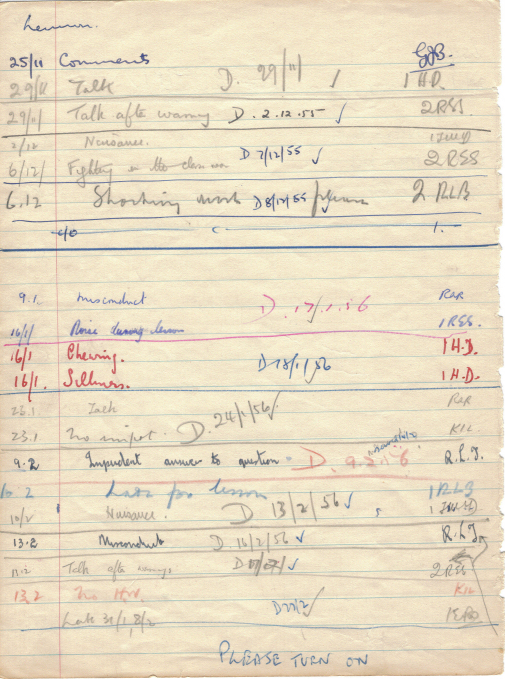 Lennon.
25/11 Comments GJB.
29/11 Talk D. 29/11 ✓ 1 HD.
29/11 Talk after warning D. 2.12.55 ✓ 2RSS
2/12 Nuisance.
6/12/ Fighting in the class room D 7/12/55 ✓ 2RSS
6.12 Shocking work D 8/12/55 2 RLB
9.1. misconduct D. 17/1.56
16/1/ Noise during lesson 1RSS.
16/1 Chewing. 1 H.D.
D 18/1/56
16/1. Silliness. 1 H.D.
Talk
23.1 No impot. D. 24/1/56 ✓ KIL
9.2 Impudent answer to question D. 9.2.56 R.L.J.
10.2 Late for lesson 1RLB
10/2 Nuisance. D 13/2/56 ✓
13.2 Misconduct D 14/2/56 ✓ R.L.J.
Talk after warnings ✓ 2RSS
13.2 No H.W. KIL
Late
PLEASE TURN ON